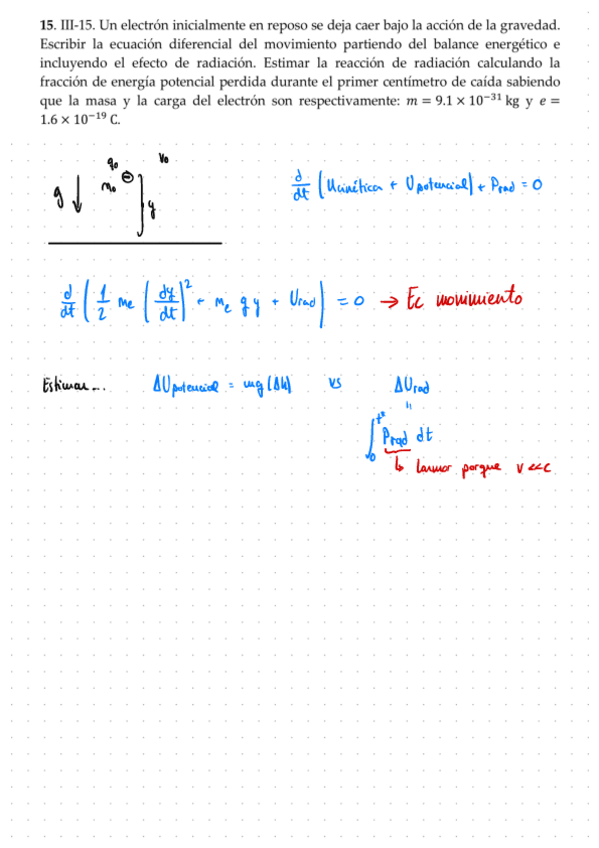 15. III-15. Un electrón inicialmente en reposo se deja caer bajo la acción de la gravedad.
Escribir la ecuación diferencial del movimiento partiendo del balance energético e
incluyendo el efecto de radiación. Estimar la reacción de radiación calculando la
fracción de energía potencial perdida durante el primer centímetro de caída sabiendo
que la masa y la carga del electrón son respectivamente: m = 9.1 × 10⁻³¹ kg y e =
1.6 × 10⁻¹⁹ C.
q₀ v₀
g ↓ m₀ ⊖ y
d/dt (Ucinética + Upotencial) + Prad = 0
d/dt (1/2 me (dy/dt)² + me g y + Urad) = 0 → Ec movimiento
Estimar... ΔUpotencial = mg (Δh) vs ΔUrad
=
∫₀^t* Prad dt
↳ Larmor porque v <<< c